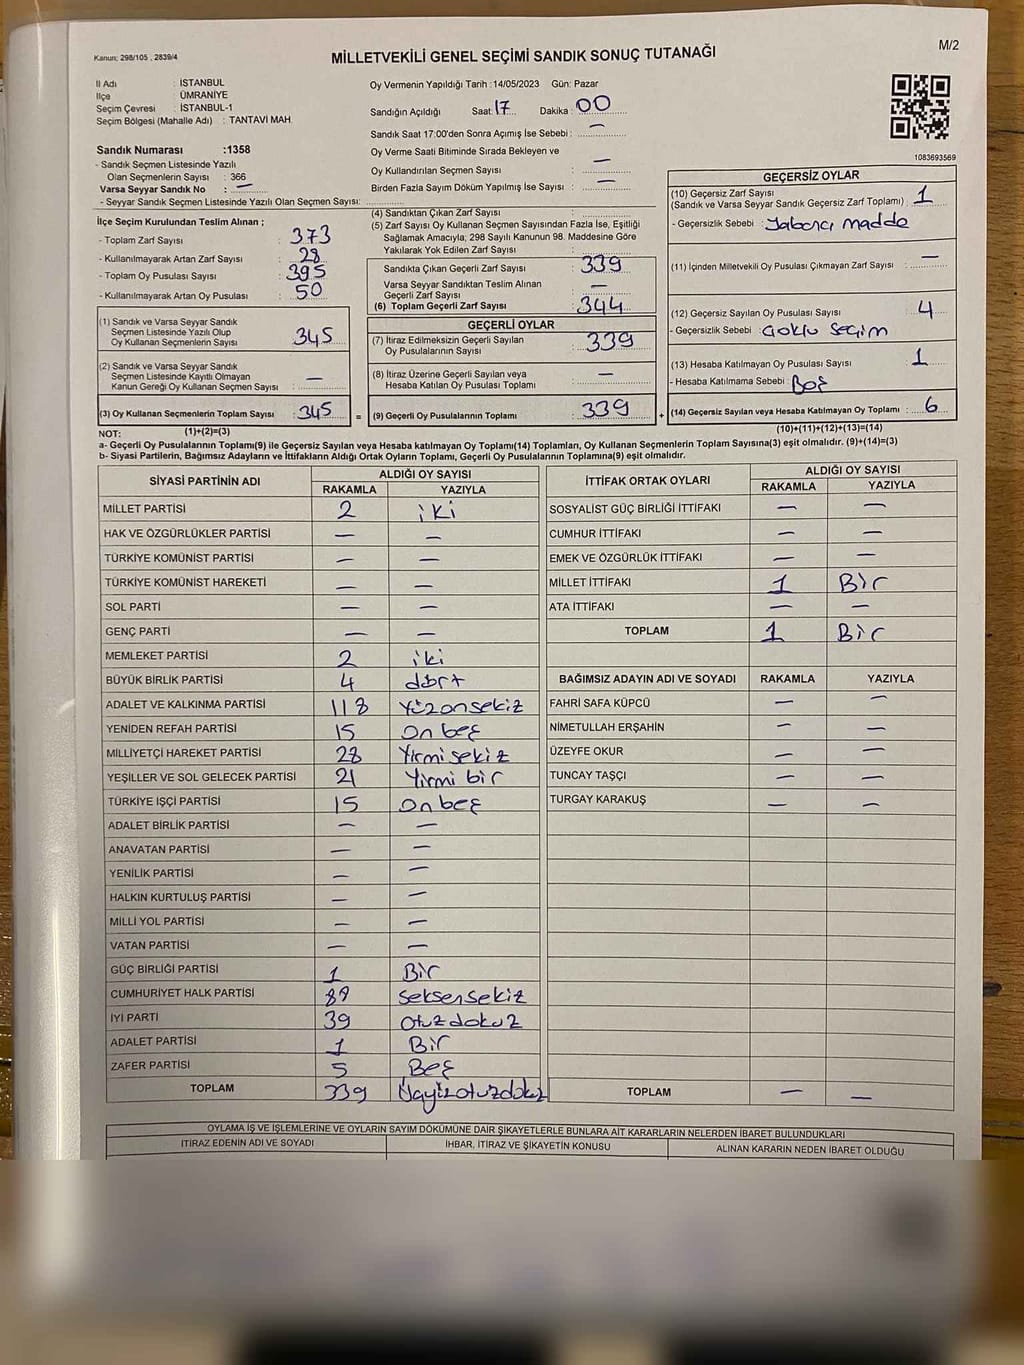 Kanun: 298/105 , 2839/4
MİLLETVEKİLİ GENEL SEÇİMİ SANDIK SONUÇ TUTANAĞI
M/2
İl Adı : İSTANBUL
İlçe : ÜMRANİYE
Seçim Çevresi : İSTANBUL-1
Seçim Bölgesi (Mahalle Adı) : TANTAVİ MAH.
Oy Vermenin Yapıldığı Tarih :14/05/2023 Gün: Pazar
Sandığın Açıldığı Saat: 17 Dakika : 00
Sandık Saat 17:00'den Sonra Açımış İse Sebebi : —
Oy Verme Saati Bitiminde Sırada Bekleyen ve
Oy Kullandırılan Seçmen Sayısı : —
Birden Fazla Sayım Döküm Yapılmış İse Sayısı : —
1083693569
Sandık Numarası :1358
- Sandık Seçmen Listesinde Yazılı
Olan Seçmenlerin Sayısı : 366
Varsa Seyyar Sandık No : —
- Seyyar Sandık Seçmen Listesinde Yazılı Olan Seçmen Sayısı:
İlçe Seçim Kurulundan Teslim Alınan ;
- Toplam Zarf Sayısı : 373
- Kullanılmayarak Artan Zarf Sayısı : 28
- Toplam Oy Pusulası Sayısı : 395
- Kullanılmayarak Artan Oy Pusulası : 50
(1) Sandık ve Varsa Seyyar Sandık
Seçmen Listesinde Yazılı Olup
Oy Kullanan Seçmenlerin Sayısı : 345
(2) Sandık ve Varsa Seyyar Sandık
Seçmen Listesinde Kayıtlı Olmayan
Kanun Gereği Oy Kullanan Seçmen Sayısı : —
(3) Oy Kullanan Seçmenlerin Toplam Sayısı : 345 =
(1)+(2)=(3)
(4) Sandıktan Çıkan Zarf Sayısı :
(5) Zarf Sayısı Oy Kullanan Seçmen Sayısından Fazla İse, Eşitliği
Sağlamak Amacıyla, 298 Sayılı Kanunun 98. Maddesine Göre
Yakılarak Yok Edilen Zarf Sayısı :
Sandıkta Çıkan Geçerli Zarf Sayısı : 339
Varsa Seyyar Sandıktan Teslim Alınan
Geçerli Zarf Sayısı : —
(6) Toplam Geçerli Zarf Sayısı : 344
GEÇERLİ OYLAR
(7) İtiraz Edilmeksizin Geçerli Sayılan
Oy Pusulalarının Sayısı : 339
(8) İtiraz Üzerine Geçerli Sayılan veya
Hesaba Katılan Oy Pusulası Toplamı : —
(9) Geçerli Oy Pusulalarının Toplamı : 339 +
GEÇERSİZ OYLAR
(10) Geçersiz Zarf Sayısı
(Sandık ve Varsa Seyyar Sandık Geçersiz Zarf Toplamı) : 1
- Geçersizlik Sebebi : Yabancı madde
(11) İçinden Milletvekili Oy Pusulası Çıkmayan Zarf Sayısı : —
(12) Geçersiz Sayılan Oy Pusulası Sayısı : 4
- Geçersizlik Sebebi : Çoklu Seçim
(13) Hesaba Katılmayan Oy Pusulası Sayısı : 1
- Hesaba Katılmama Sebebi : Boş
(14) Geçersiz Sayılan veya Hesaba Katılmayan Oy Toplamı : 6
(10)+(11)+(12)+(13)=(14)
NOT:
a- Geçerli Oy Pusulalarının Toplamı(9) ile Geçersiz Sayılan veya Hesaba katılmayan Oy Toplamı(14) Toplamları, Oy Kullanan Seçmenlerin Toplam Sayısına(3) eşit olmalıdır. (9)+(14)=(3)
b- Siyasi Partilerin, Bağımsız Adayların ve İttifakların Aldığı Ortak Oyların Toplamı, Geçerli Oy Pusulalarının Toplamına(9) eşit olmalıdır.
SİYASİ PARTİNİN ADI ALDIĞI OY SAYISI
RAKAMLA YAZIYLA
MİLLET PARTİSİ 2 iki
HAK VE ÖZGÜRLÜKLER PARTİSİ — —
TÜRKİYE KOMÜNİST PARTİSİ — —
TÜRKİYE KOMÜNİST HAREKETİ — —
SOL PARTİ — —
GENÇ PARTİ — —
MEMLEKET PARTİSİ 2 iki
BÜYÜK BİRLİK PARTİSİ 4 dört
ADALET VE KALKINMA PARTİSİ 118 Yüzonsekiz
YENİDEN REFAH PARTİSİ 15 On beş
MİLLİYETÇİ HAREKET PARTİSİ 28 Yirmi sekiz
YEŞİLLER VE SOL GELECEK PARTİSİ 21 Yirmi bir
TÜRKİYE İŞÇİ PARTİSİ 15 On beş
ADALET BİRLİK PARTİSİ — —
ANAVATAN PARTİSİ — —
YENİLİK PARTİSİ — —
HALKIN KURTULUŞ PARTİSİ — —
MİLLİ YOL PARTİSİ — —
VATAN PARTİSİ — —
GÜÇ BİRLİĞİ PARTİSİ 1 Bir
CUMHURİYET HALK PARTİSİ 88 Seksensekiz
İYİ PARTİ 39 Otuzdokuz
ADALET PARTİSİ 1 Bir
ZAFER PARTİSİ 5 Beş
TOPLAM 339 Üçyüzotuzdokuz
İTTİFAK ORTAK OYLARI ALDIĞI OY SAYISI
RAKAMLA YAZIYLA
SOSYALİST GÜÇ BİRLİĞİ İTTİFAKI — —
CUMHUR İTTİFAKI — —
EMEK VE ÖZGÜRLÜK İTTİFAKI — —
MİLLET İTTİFAKI 1 Bir
ATA İTTİFAKI — —
TOPLAM 1 Bir
BAĞIMSIZ ADAYIN ADI VE SOYADI RAKAMLA YAZIYLA
FAHRİ SAFA KÜPCÜ — —
NİMETULLAH ERŞAHİN — —
ÜZEYFE OKUR — —
TUNCAY TAŞÇI — —
TURGAY KARAKUŞ — —
TOPLAM — —
OYLAMA İŞ VE İŞLEMLERİNE VE OYLARIN SAYIM DÖKÜMÜNE DAİR ŞİKAYETLERLE BUNLARA AİT KARARLARIN NELERDEN İBARET BULUNDUKLARI
İTİRAZ EDENİN ADI VE SOYADI İHBAR, İTİRAZ VE ŞİKAYETİN KONUSU ALINAN KARARIN NEDEN İBARET OLDUĞU